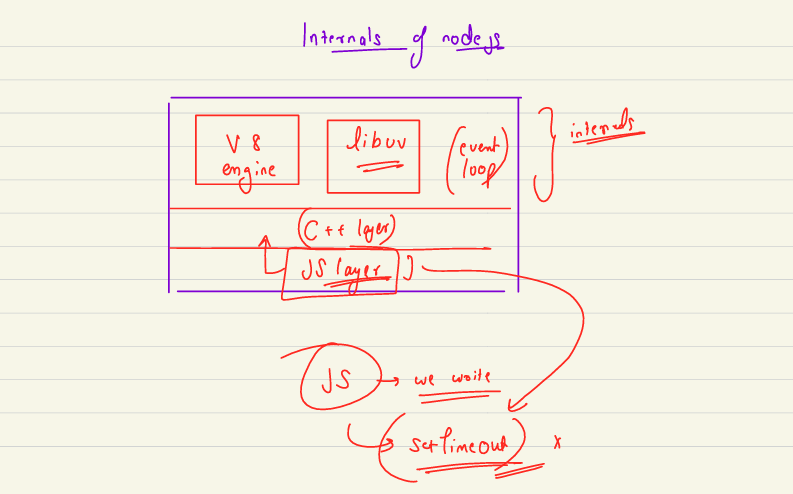 Internals of nodejs
V8 engine
libuv
(event loop)
internals
(C++ layer)
JS layer
JS → we write
(setTimeout) x